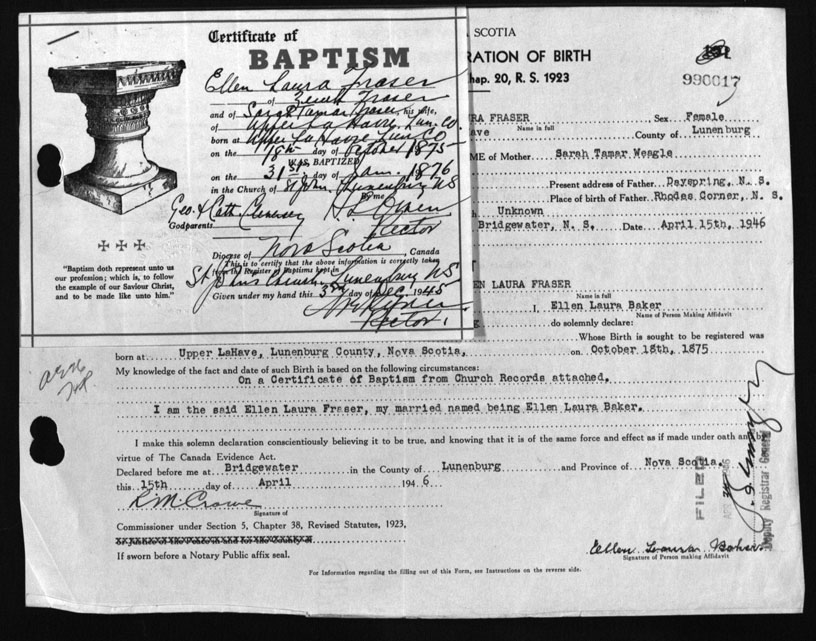 Certificate of
BAPTISM
Ellen Laura Fraser
of Fraser
and of Sarah Tamar Fraser, his wife,
of Upper La Have, Lun. Co.
born at Upper La Have Lun. Co
on the 18th day of October 1875
WAS BAPTIZED
on the 31st day of Jan. 1876
in the Church of St John, Lunenburg NS
By me
Geo. & Cath
Godparents
Rector
Diocese of Nova Scotia Canada
This is to certify that the above information is correctly taken
from the Register of Baptisms kept in
St John's Church Lunenburg NS
Given under my hand this 3rd day of Dec. 1945
Rector.
✠ ✠ ✠
"Baptism doth represent unto us
our profession; which is, to follow
the example of our Saviour Christ,
and to be made like unto him."
SCOTIA
RATION OF BIRTH
hap. 20, R. S. 1923
990017
RA FRASER Sex Female
Name in full
ave County of Lunenburg
ME of Mother Sarah Tamar Weagle
Present address of Father Dayspring, N. S.
Place of birth of Father Rhodes Corner, N. S.
h Unknown
Bridgewater, N. S. Date April 15th, 1946
EN LAURA FRASER
Name in full
I, Ellen Laura Baker
Name of Person Making Affidavit
do solemnly declare:
Whose Birth is sought to be registered was
born at Upper LaHave, Lunenburg County, Nova Scotia, on October 18th, 1875
My knowledge of the fact and date of such Birth is based on the following circumstances:
On a Certificate of Baptism from Church Records attached.
I am the said Ellen Laura Fraser, my married named being Ellen Laura Baker.
I make this solemn declaration conscientiously believing it to be true, and knowing that it is of the same force and effect as if made under oath and by
virtue of The Canada Evidence Act.
Declared before me at Bridgewater in the County of Lunenburg and Province of Nova Scotia,
this 15th day of April 1946
R M Crowe
Signature of
Commissioner under Section 5, Chapter 38, Revised Statutes, 1923,
If sworn before a Notary Public affix seal.
FILED
Deputy Registrar General
Ellen Laura Baker
Signature of Person making Affidavit
For Information regarding the filling out of this Form, see Instructions on the reverse side.